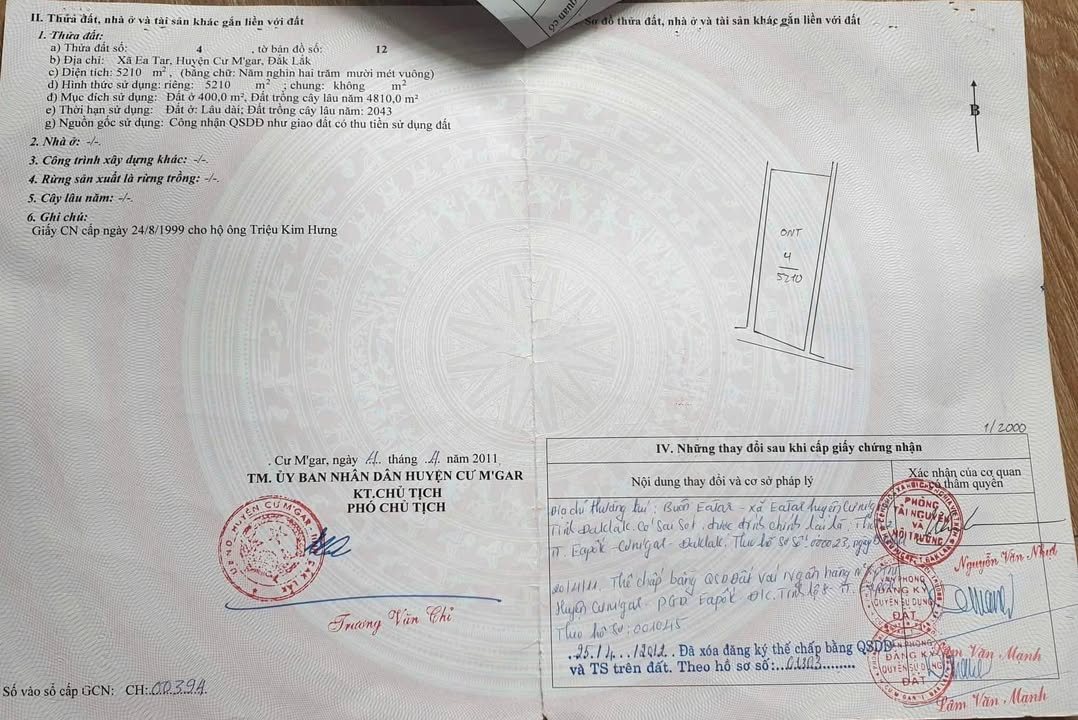 II. Thửa đất, nhà ở và tài sản khác gắn liền với đất
1. Thửa đất:
a) Thửa đất số: 4 , tờ bản đồ số: 12
b) Địa chỉ: Xã Ea Tar, Huyện Cư M'gar, Đắk Lắk
c) Diện tích: 5210 m², (bằng chữ: Năm nghìn hai trăm mười mét vuông)
d) Hình thức sử dụng: riêng: 5210 m² ; chung: không m²
đ) Mục đích sử dụng: Đất ở 400,0 m², Đất trồng cây lâu năm 4810,0 m²
e) Thời hạn sử dụng: Đất ở: Lâu dài; Đất trồng cây lâu năm: 2043
g) Nguồn gốc sử dụng: Công nhận QSDĐ như giao đất có thu tiền sử dụng đất
2. Nhà ở: -/-.
3. Công trình xây dựng khác: -/-.
4. Rừng sản xuất là rừng trồng: -/-.
5. Cây lâu năm: -/-.
6. Ghi chú:
Giấy CN cấp ngày 24/8/1999 cho hộ ông Triệu Kim Hưng
Cư M'gar, ngày 11 tháng 4 năm 2011
TM. ỦY BAN NHÂN DÂN HUYỆN CƯ M'GAR
KT.CHỦ TỊCH
PHÓ CHỦ TỊCH
Trương Văn Chỉ
Số vào sổ cấp GCN: CH: 00394
quan có
Sơ đồ thửa đất, nhà ở và tài sản khác gắn liền với đất
B
ONT
4
5210
1/2000
IV. Những thay đổi sau khi cấp giấy chứng nhận
Nội dung thay đổi và cơ sở pháp lý
Xác nhận của cơ quan có thẩm quyền
Địa chỉ thường trú: Buôn Eatar - xã Eatar huyện Cưm'g
Tỉnh Đaklak. Có sai sót, được đính chính lại là:
TT. Eapốk - Cưm'gar - Đaklak. Theo hồ sơ số: 000023, ngày
PHÒNG
TÀI NGUYÊN
VÀ
MÔI TRƯỜNG
Nguyễn Văn Nhựt
20/4/11. Thế chấp bằng QSDĐất với Ngân hàng
Huyện Cưm'gar - PGD Eapốk Đ/c. Tỉnh lộ 8 - TT.
Theo hồ sơ: 001045
VĂN PHÒNG
ĐĂNG KÝ
QUYỀN SỬ DỤNG
ĐẤT
Lâm Văn Mạnh
25/4/2012. Đã xóa đăng ký thế chấp bằng QSDĐ
và TS trên đất. Theo hồ sơ số: 01303
VĂN PHÒNG
ĐĂNG KÝ
QUYỀN SỬ DỤNG
ĐẤT
Lâm Văn Mạnh